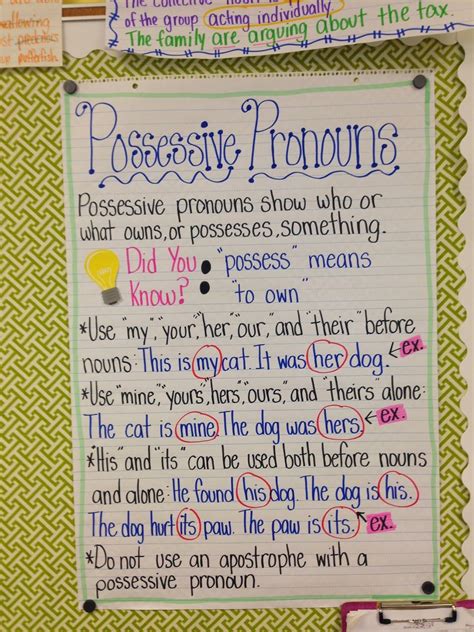 of the group acting individually.
The family are arguing about the tax.
Possessive Pronouns
Possessive pronouns show who or
what owns, or possesses, something.
Did You Know?
"possess" means
"to own"
*Use "my", "your", "her", "our", and "their" before
nouns: This is my cat. It was her dog. ex.
*Use "mine", "yours", "hers", "ours", and "theirs" alone:
The cat is mine. The dog was hers. ex.
*"His" and "its" can be used both before nouns
and alone: He found his dog. The dog is his.
The dog hurt its paw. The paw is its. ex.
*Do not use an apostrophe with a
possessive pronoun.